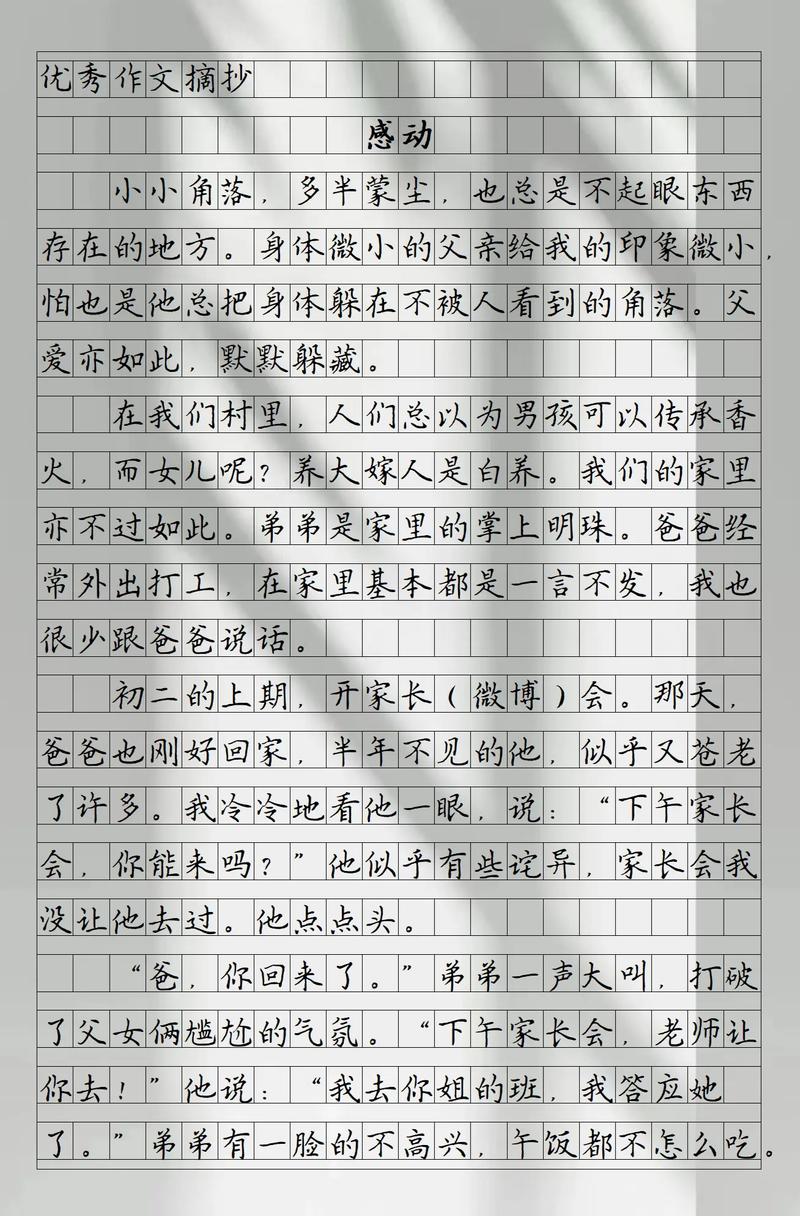 优秀作文摘抄
感动
小小角落，多半蒙尘，也总是不起眼东西
存在的地方。身体微小的父亲给我的印象微小，
怕也是他总把身体躲在不被人看到的角落。父
爱亦如此，默默躲藏。
在我们村里，人们总以为男孩可以传承香
火，而女儿呢？养大嫁人是白养。我们的家里
亦不过如此。弟弟是家里的掌上明珠。爸爸经
常外出打工，在家里基本都是一言不发，我也
很少跟爸爸说话。
初二的上期，开家长（微博）会。那天，
爸爸也刚好回家，半年不见的他，似乎又苍老
了许多。我冷冷地看他一眼，说：“下午家长
会，你能来吗？”他似乎有些诧异，家长会我
没让他去过。他点点头。
“爸，你回来了。”弟弟一声大叫，打破
了父女俩尴尬的气氛。“下午家长会，老师让
你去！”他说：“我去你姐的班，我答应她
了。”弟弟有一脸的不高兴，午饭都不怎么吃。